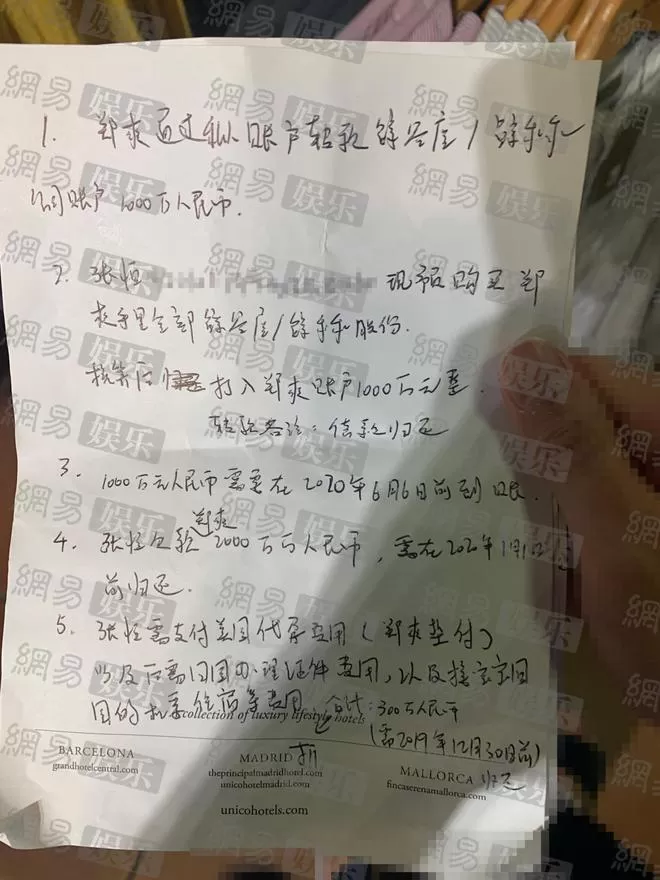 網易娱乐
1. 郑爽通过 账户转款
公司账户1000万人民币.
2. 张恒 现 购买郑
爽手里全部 股份.
核算后 打入郑爽账户1000万元整.
转账备注:借款归还
3. 1000万元人民币需要在2020年6月6日前到账.
郑爽
4. 张恒欠款2000万 人民币,需在2020年1月1日
前归还.
5. 张恒需支付美国代孕费用(郑爽垫付)
以及后需回国办理证件费用,以及接宝宝回
国的机票住宿等费用 合计:300万人民币
(需2019年12月30日前)
归还
collection of luxury lifestyle hotels
BARCELONA
grandhotelcentral.com
MADRID
theprincipalmadridhotel.com
unicohotelmadrid.com
MALLORCA
fincaserenamallorca.com
unicohotels.com